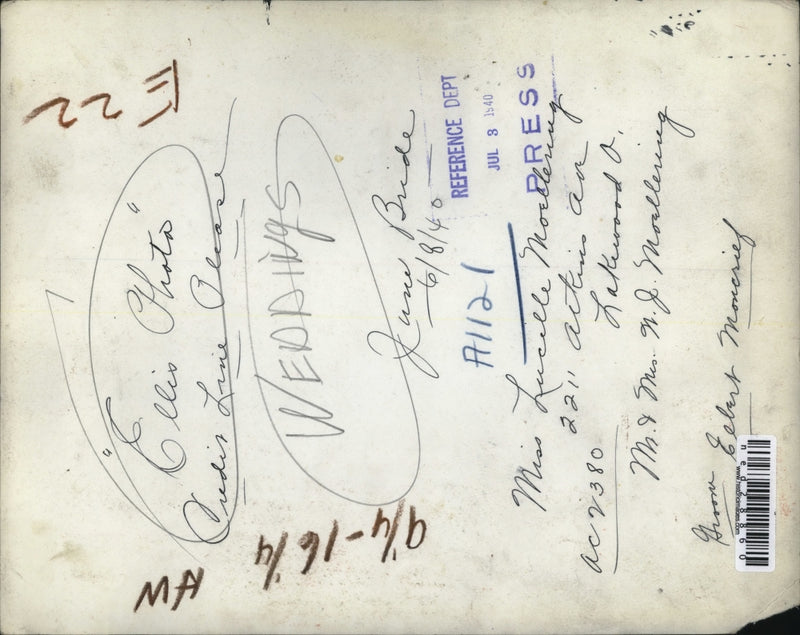 "Ellis Photo"
Credit Line Please
WEDDINGS
June Bride
6/8/40
REFERENCE DEPT
JUL 3 1940
PRESS
A1121
Miss Lucille Moellering
2211 Atkins av
Lakewood O.
AC 2380
Mr. & Mrs. N. J. Moellering
Groom Elbert Moncrief
E 22
9/4-16/4
HW
ned28860